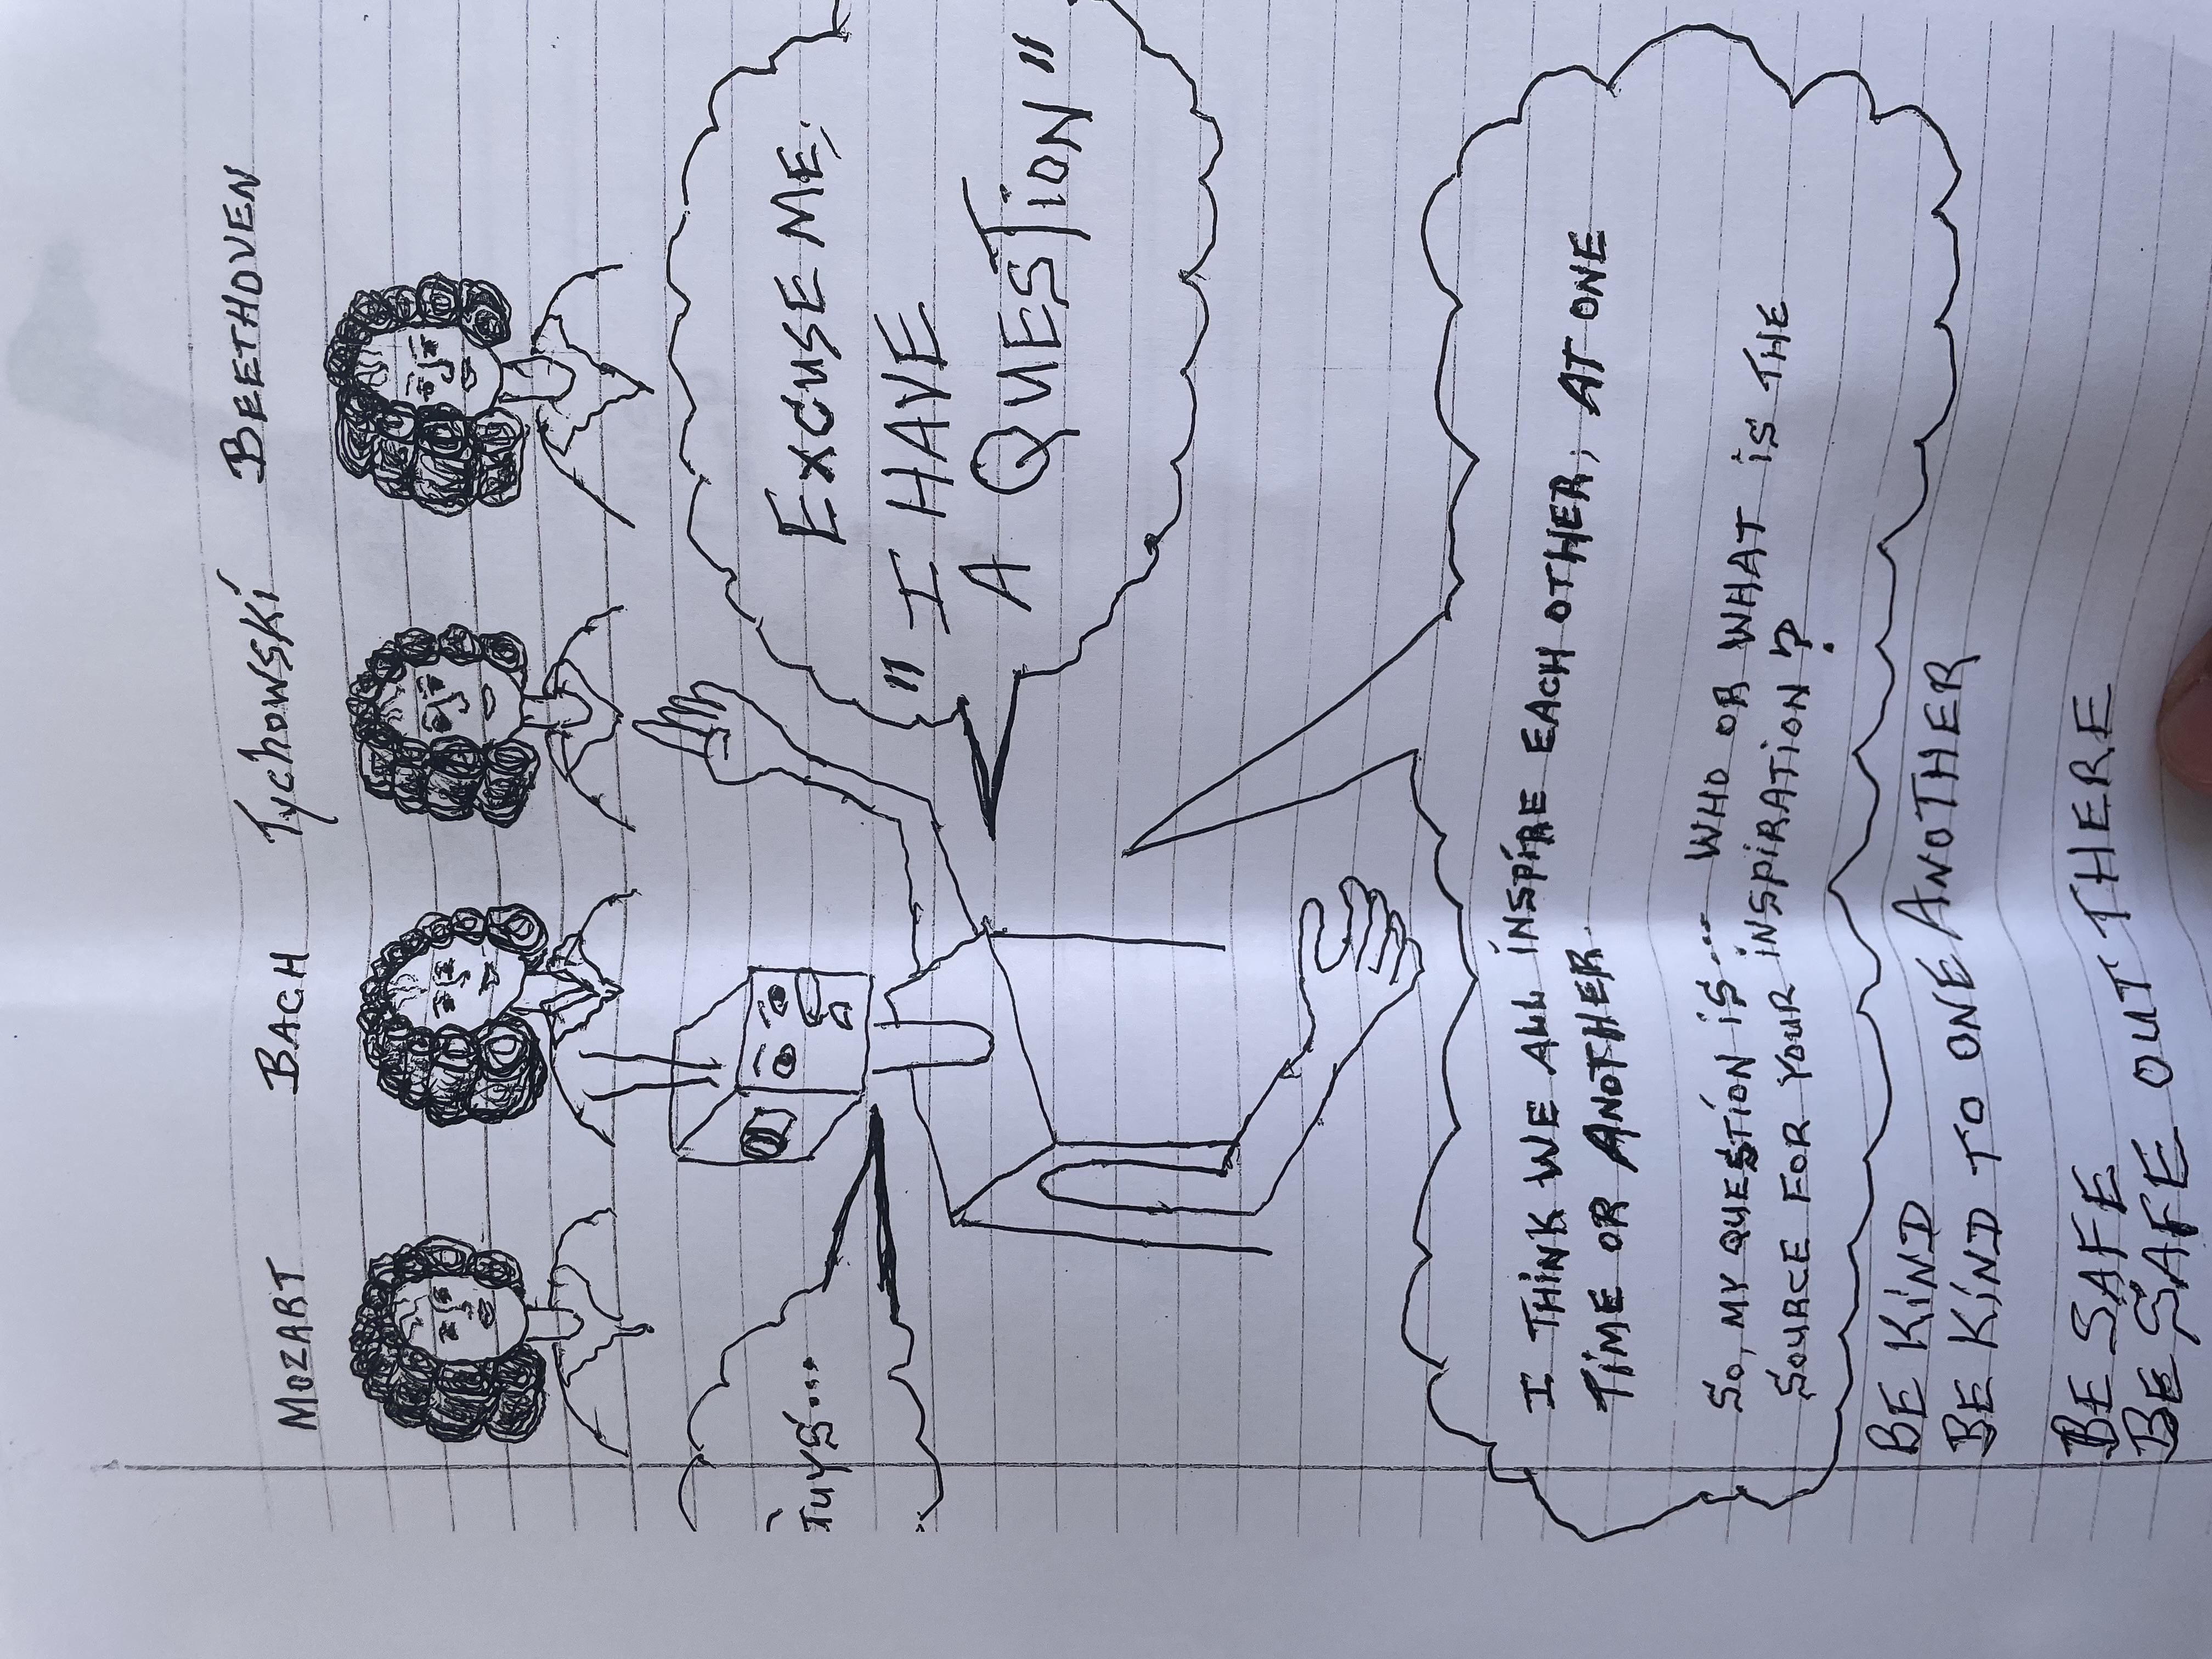 MOZART BACH Tychowski BEETHOVEN
EXCUSE ME;
" I HAVE
A QUESTION "
I THINK WE ALL INSPIRE EACH OTHER, AT ONE
TIME OR ANOTHER.
SO, MY QUESTION IS.... WHO OR WHAT IS THE
SOURCE FOR YOUR INSPIRATION ?
BE KIND
BE KIND TO ONE ANOTHER
BE SAFE
BE SAFE OUT THERE